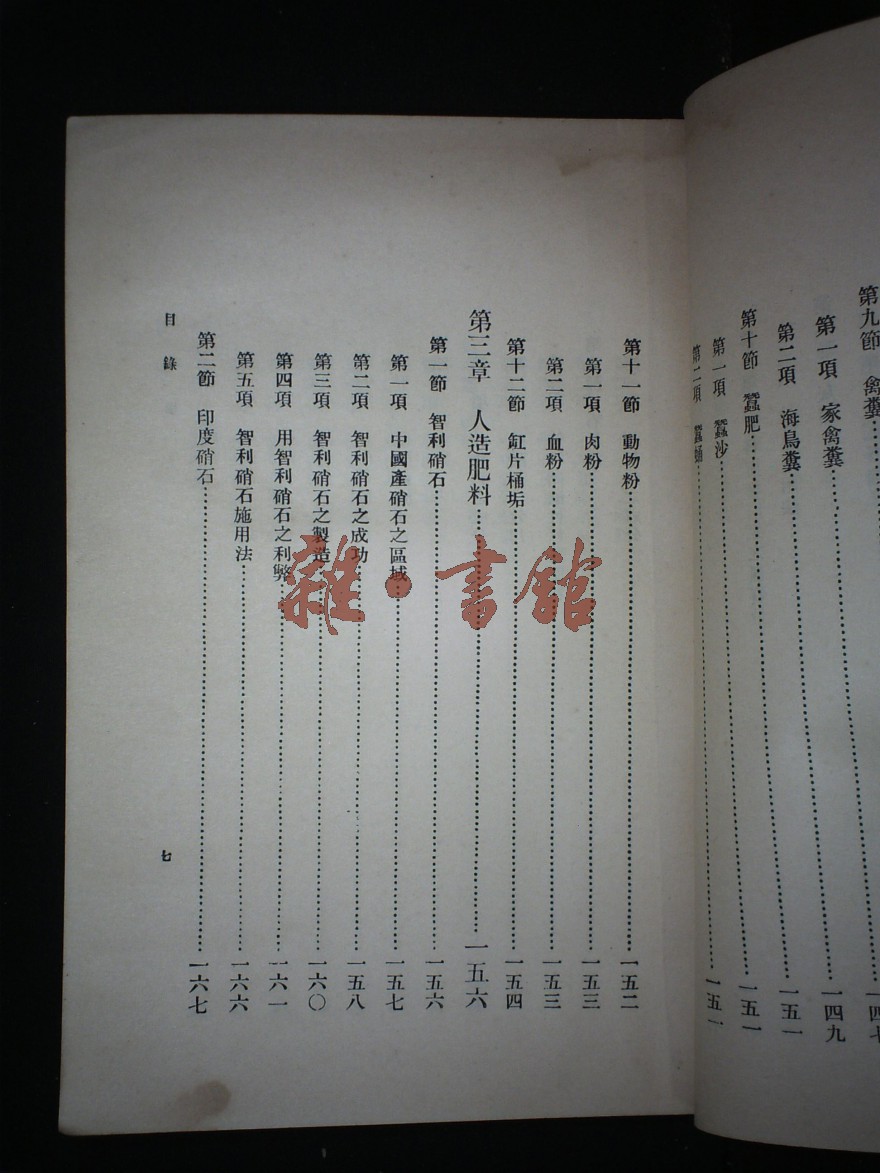 第九節　禽糞……一四七
第一項　家禽糞……一四九
第二項　海鳥糞……一五一
第十節　蠶肥……一五一
第一項　蠶沙……一五一
第二項　蠶蛹……
第十一節　動物粉……一五二
第一項　肉粉……一五三
第二項　血粉……一五三
第十二節　缸片桶垢……一五四
第三章　人造肥料……一五六
第一節　智利硝石……一五六
第一項　中國產硝石之區域……一五七
第二項　智利硝石之成功……一五八
第三項　智利硝石之製造……一六〇
第四項　用智利硝石之利弊……一六一
第五項　智利硝石施用法……一六六
第二節　印度硝石……一六七
目錄
七
雜·書館